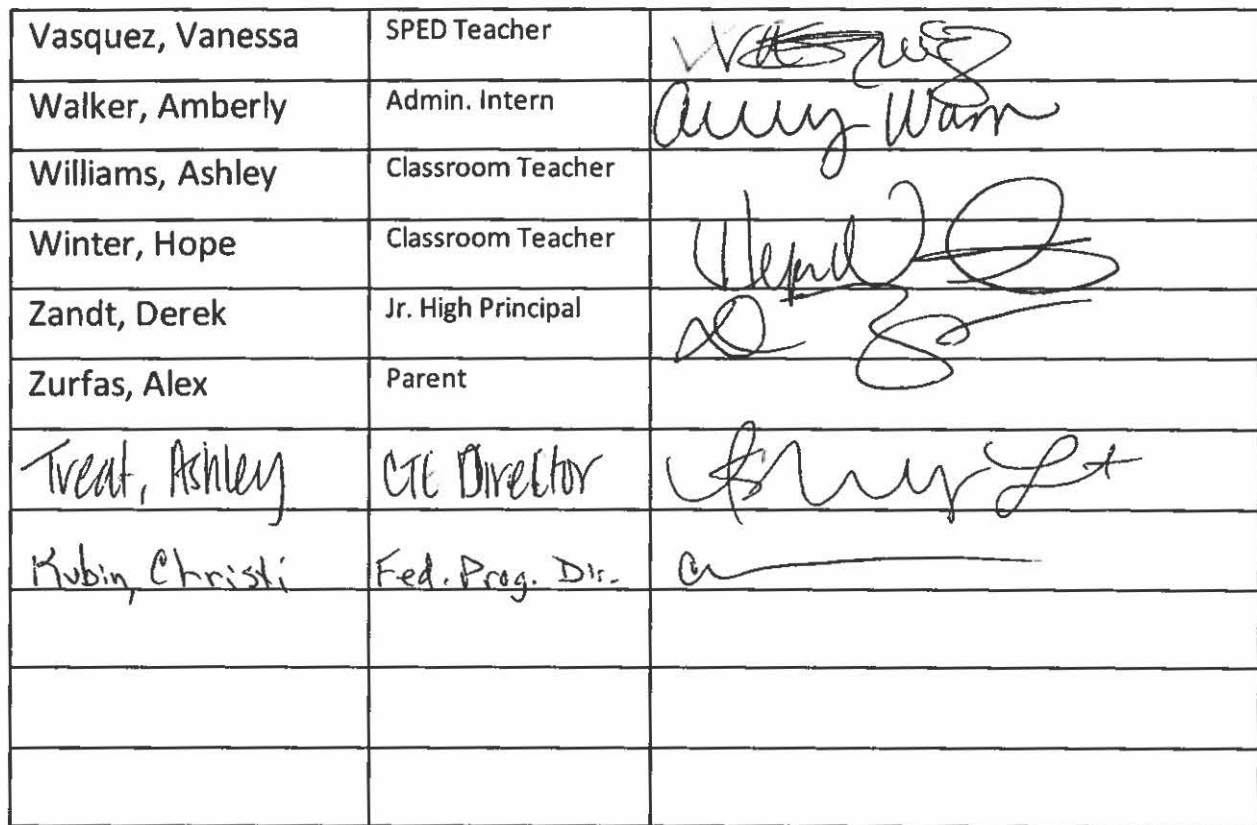 Vasquez, Vanessa SPED Teacher
Walker, Amberly Admin. Intern
Williams, Ashley Classroom Teacher
Winter, Hope Classroom Teacher
Zandt, Derek Jr. High Principal
Zurfas, Alex Parent
Treat, Ashley CTE Director
Kubin, Christi Fed. Prog. Dir.